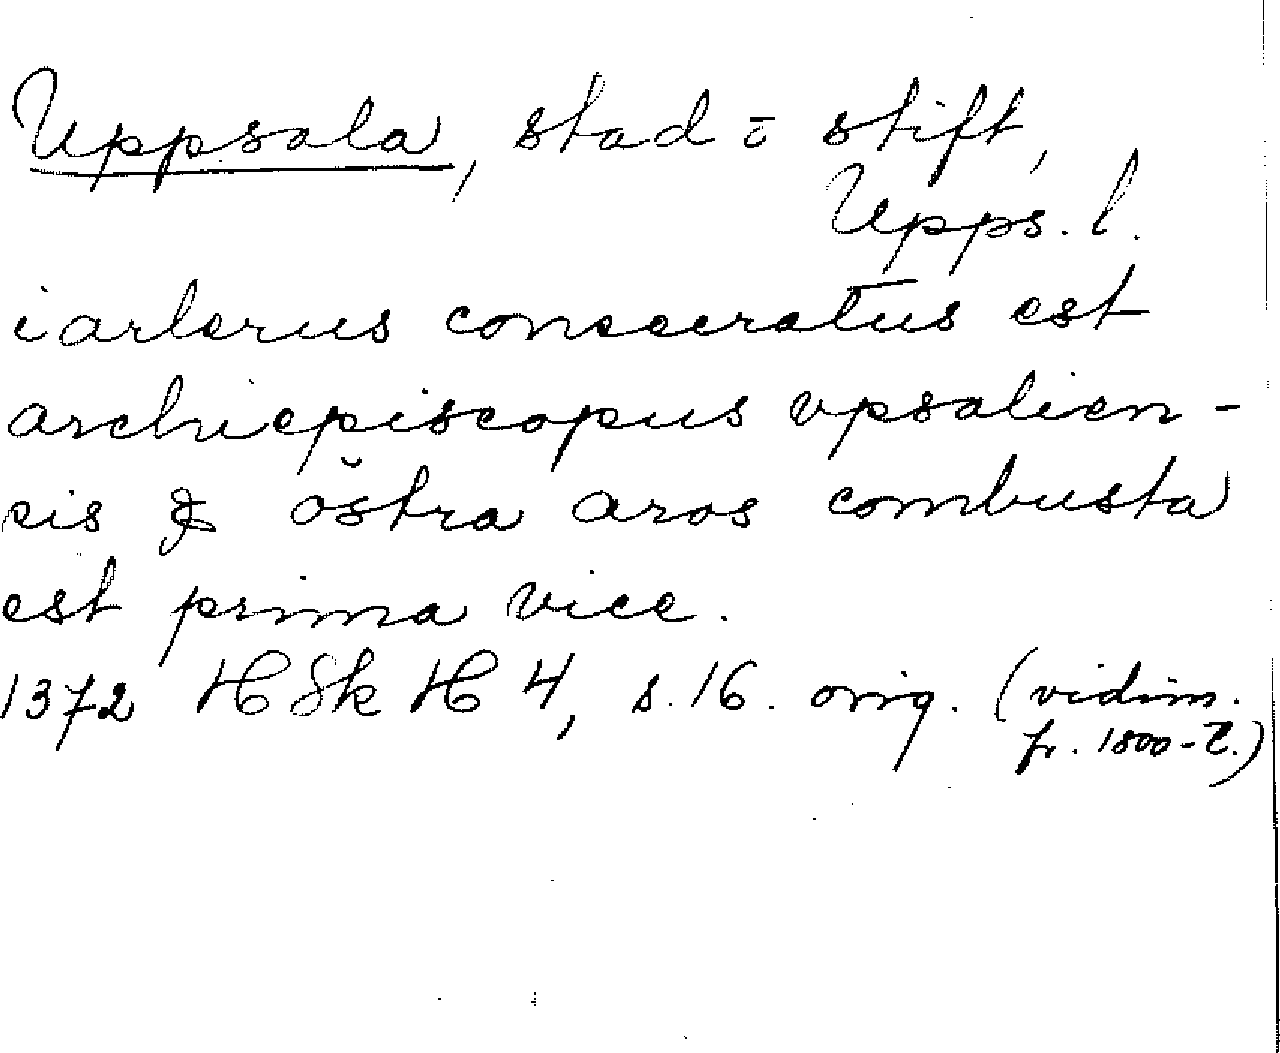 Uppsala, stad o stift,
Upps. l.
iarlerus consecratus est
archiepiscopus vpsalien-
sis & östra aros combusta
est prima vice.
1372 H Sk H 4, s. 16. orig. (vidim.
fr. 1800-t.)